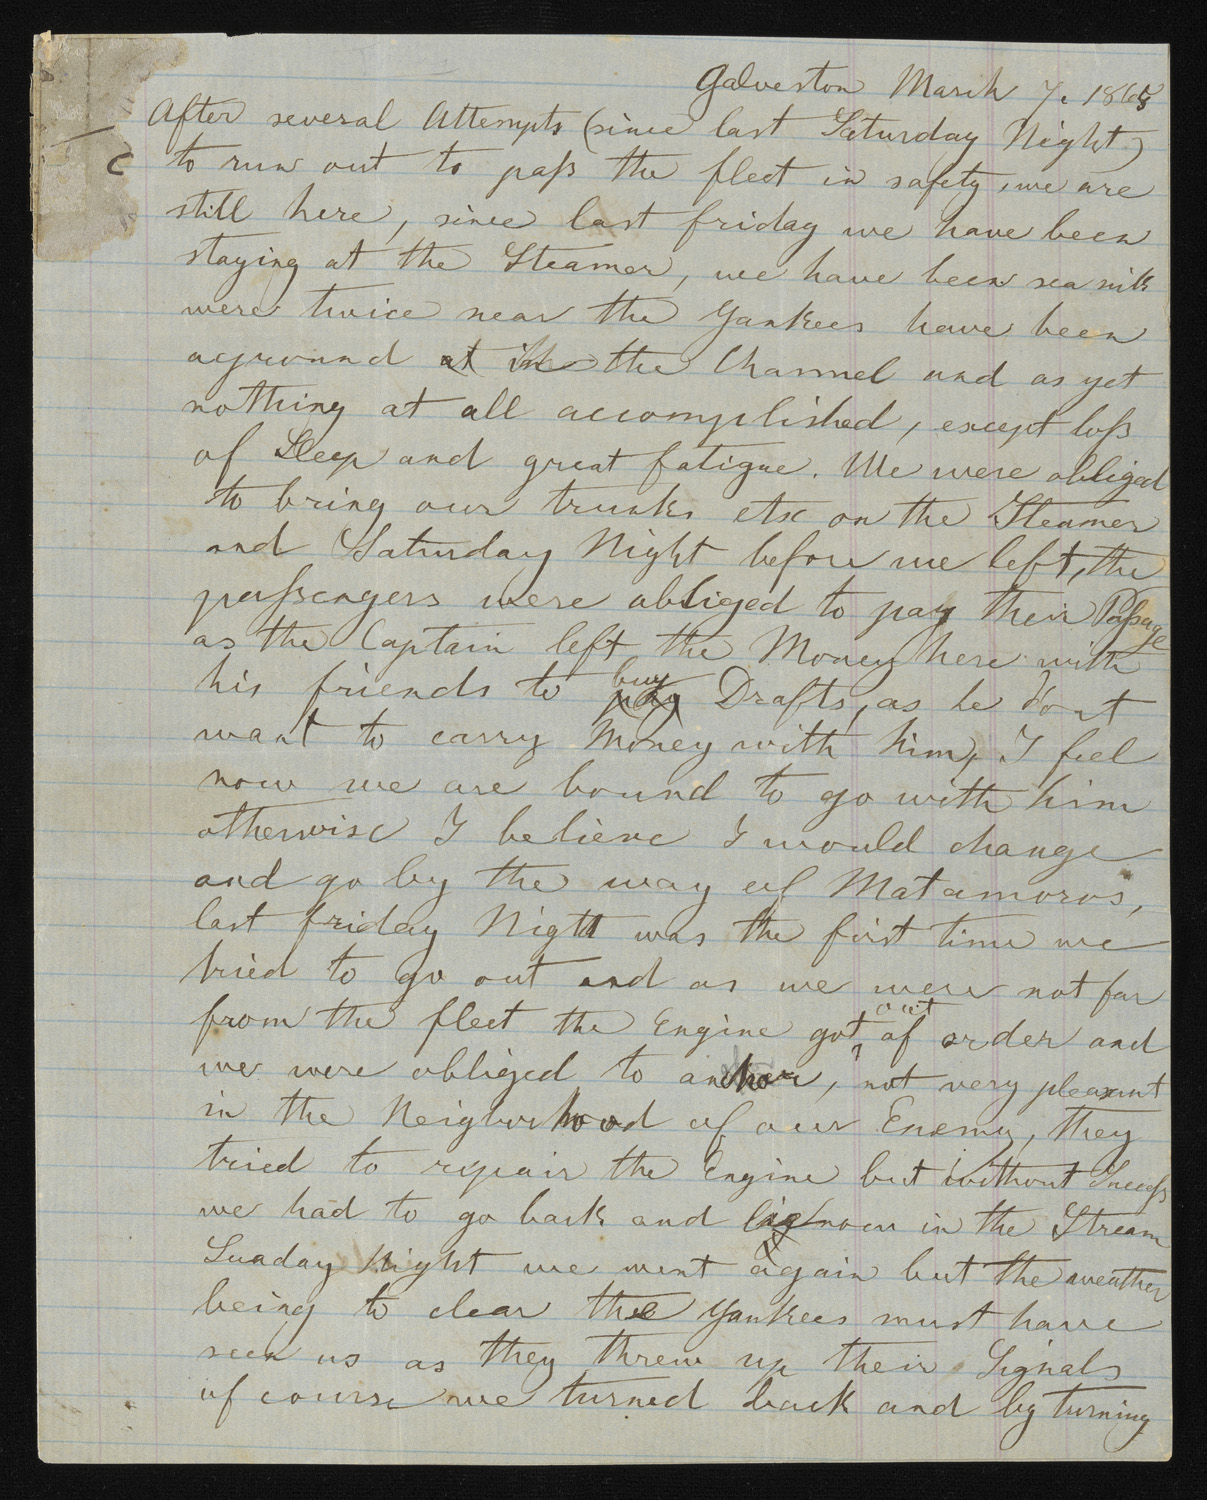 Galveston March 7. 1865
After several Attempts (since last Saturday Night)
to run out to paſs the fleet in safety, we are
still here, since last friday we have been
staying at the Steamer, we have been sea sick
were twice near the Yankees have been
aground at in the Channel and as yet
nothing at all accomplished, except loſs
of Sleep and great fatigue. We were obliged
to bring our trunks etc on the Steamer
and Saturday Night before we left, the
paſsengers were obliged to pay their Paſsage
as the Captain left the Money here with
his friends to buy Drafts, as he dont
want to carry Money with him, I feel
now we are bound to go with him
otherwise I believe I would change
and go by the way of Matamoros,
last friday Night was the first time we
tried to go out and as we were not far
from the fleet the Engine got out of order and
we were obliged to anchor, not very pleasant
in the Neighborhood of our Enemy, they
tried to repair the Engine but without Succeſs
we had to go back and lie now in the Stream
Sunday Night we went again but the weather
being to clear the Yankees must have
seen us as they threw up their Signals
of course we turned back and by turning